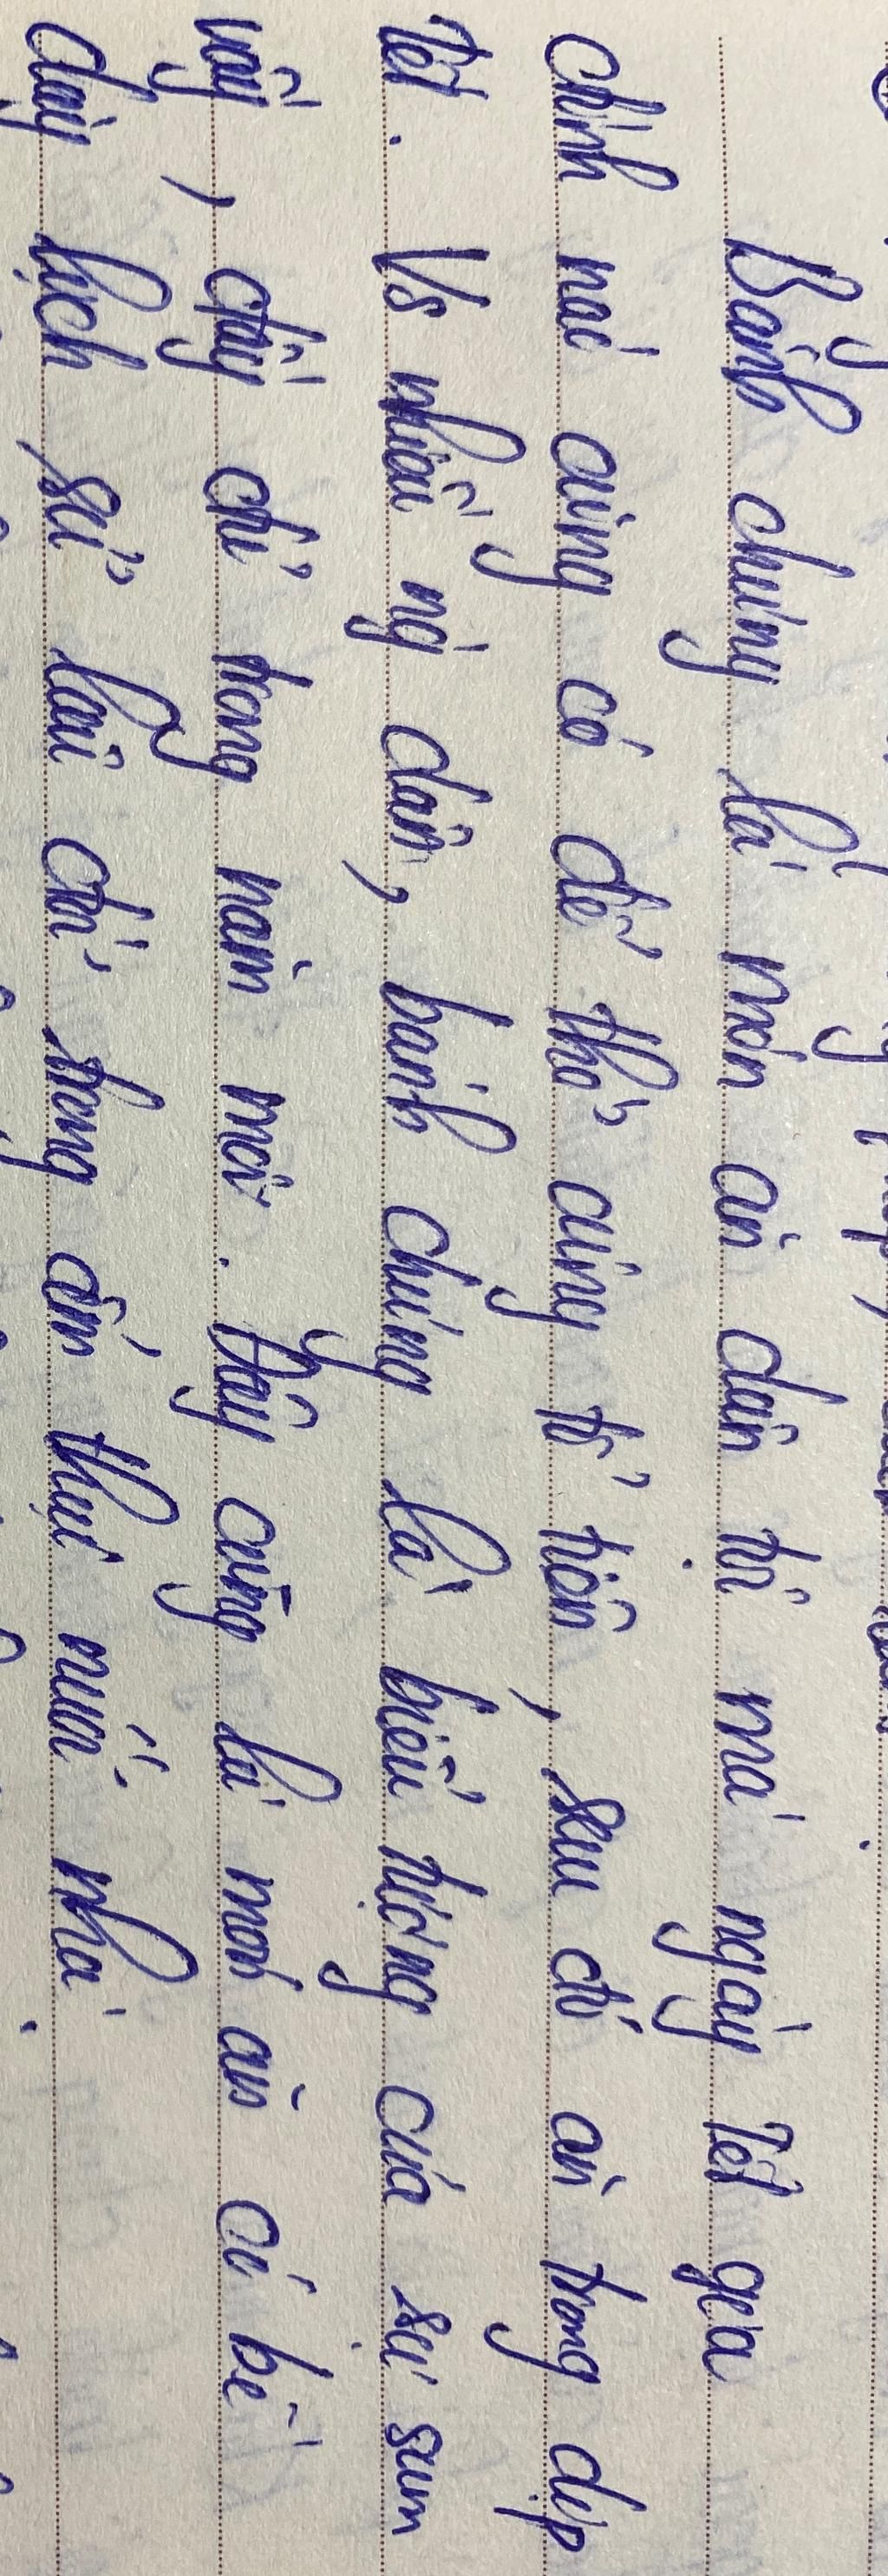 Bánh chưng là món ăn dân tộc mà ngày Tết gia
chính nào cũng có để thờ cúng tổ tiên, sau đó ăn trong dịp
tết. Vs nhiều ng dân, bánh chưng là biểu tượng của sự sum
vầy, đầy chỉ trong năm mới. Đây cũng là món ăn có bề
dày lịch sử lâu chỉ trong ẩm thực nước nhà.